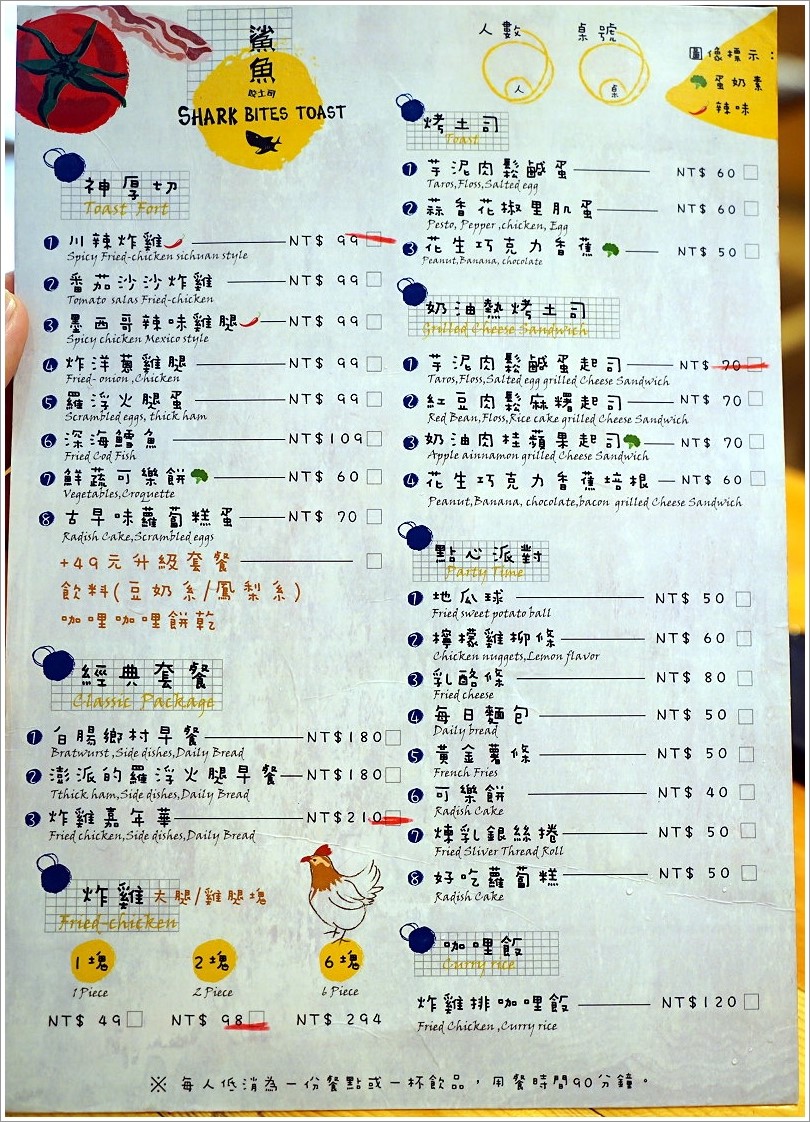 鯊魚
咬土司
SHARK BITES TOAST
人數
人
桌號
桌
圖像標示：
蛋奶素
辣味
神厚切
Toast Fort
1 川辣炸雞 NT$ 99
Spicy Fried-chicken sichuan style
2 番茄沙沙炸雞 NT$ 99
Tomato salas Fried-chicken
3 墨西哥辣味雞腿 NT$ 99
Spicy chicken Mexico style
4 炸洋蔥雞腿 NT$ 99
Fried- onion ,Chicken
5 羅浮火腿蛋 NT$ 99
Scrambled eggs, thick ham
6 深海鱈魚 NT$109
Fried Cod Fish
7 鮮蔬可樂餅 NT$ 60
Vegetables,Croquette
8 古早味蘿蔔糕蛋 NT$ 70
Radish Cake,Scrambled eggs
+49元升級套餐
飲料(豆奶系/鳳梨系)
咖哩咖哩餅乾
經典套餐
Classic Package
1 白腸鄉村早餐 NT$180
Bratwurst ,Side dishes,Daily Bread
2 澎派的羅浮火腿早餐 NT$180
Tthick ham,Side dishes,Daily Bread
3 炸雞嘉年華 NT$210
Fried chicken,Side dishes,Daily Bread
炸雞 大腿/雞腿塊
Fried chicken
1塊 2塊 6塊
1 Piece 2 Piece 6 Piece
NT$ 49 NT$ 98 NT$ 294
烤土司
Toast
1 芋泥肉鬆鹹蛋 NT$ 60
Taros,Floss,Salted egg
2 蒜香花椒里肌蛋 NT$ 60
Pesto, Pepper ,chicken, Egg
3 花生巧克力香蕉 NT$ 50
Peanut,Banana, chocolate
奶油熱烤土司
Grilled Cheese Sandwich
1 芋泥肉鬆鹹蛋起司 NT$ 70
Taros,Floss,Salted egg grilled Cheese Sandwich
2 紅豆肉鬆麻糬起司 NT$ 70
Red Bean,Floss,Rice cake grilled Cheese Sandwich
3 奶油肉桂蘋果起司 NT$ 70
Apple ainnamon grilled Cheese Sandwich
4 花生巧克力香蕉培根 NT$ 60
Peanut,Banana, chocolate,bacon grilled Cheese Sandwich
點心派對
Party Time
1 地瓜球 NT$ 50
Fried sweet potato ball
2 檸檬雞柳條 NT$ 60
Chicken nuggets,Lemon flavor
3 乳酪條 NT$ 80
Fried cheese
4 每日麵包 NT$ 50
Daily bread
5 黃金薯條 NT$ 50
French Fries
6 可樂餅 NT$ 40
Radish Cake
7 煉乳銀絲捲 NT$ 50
Fried Sliver Thread Roll
8 好吃蘿蔔糕 NT$ 50
Radish Cake
咖哩飯
Curry rice
炸雞排咖哩飯 NT$120
Fried Chicken ,Curry rice
※ 每人低消為一份餐點或一杯飲品，用餐時間90分鐘。